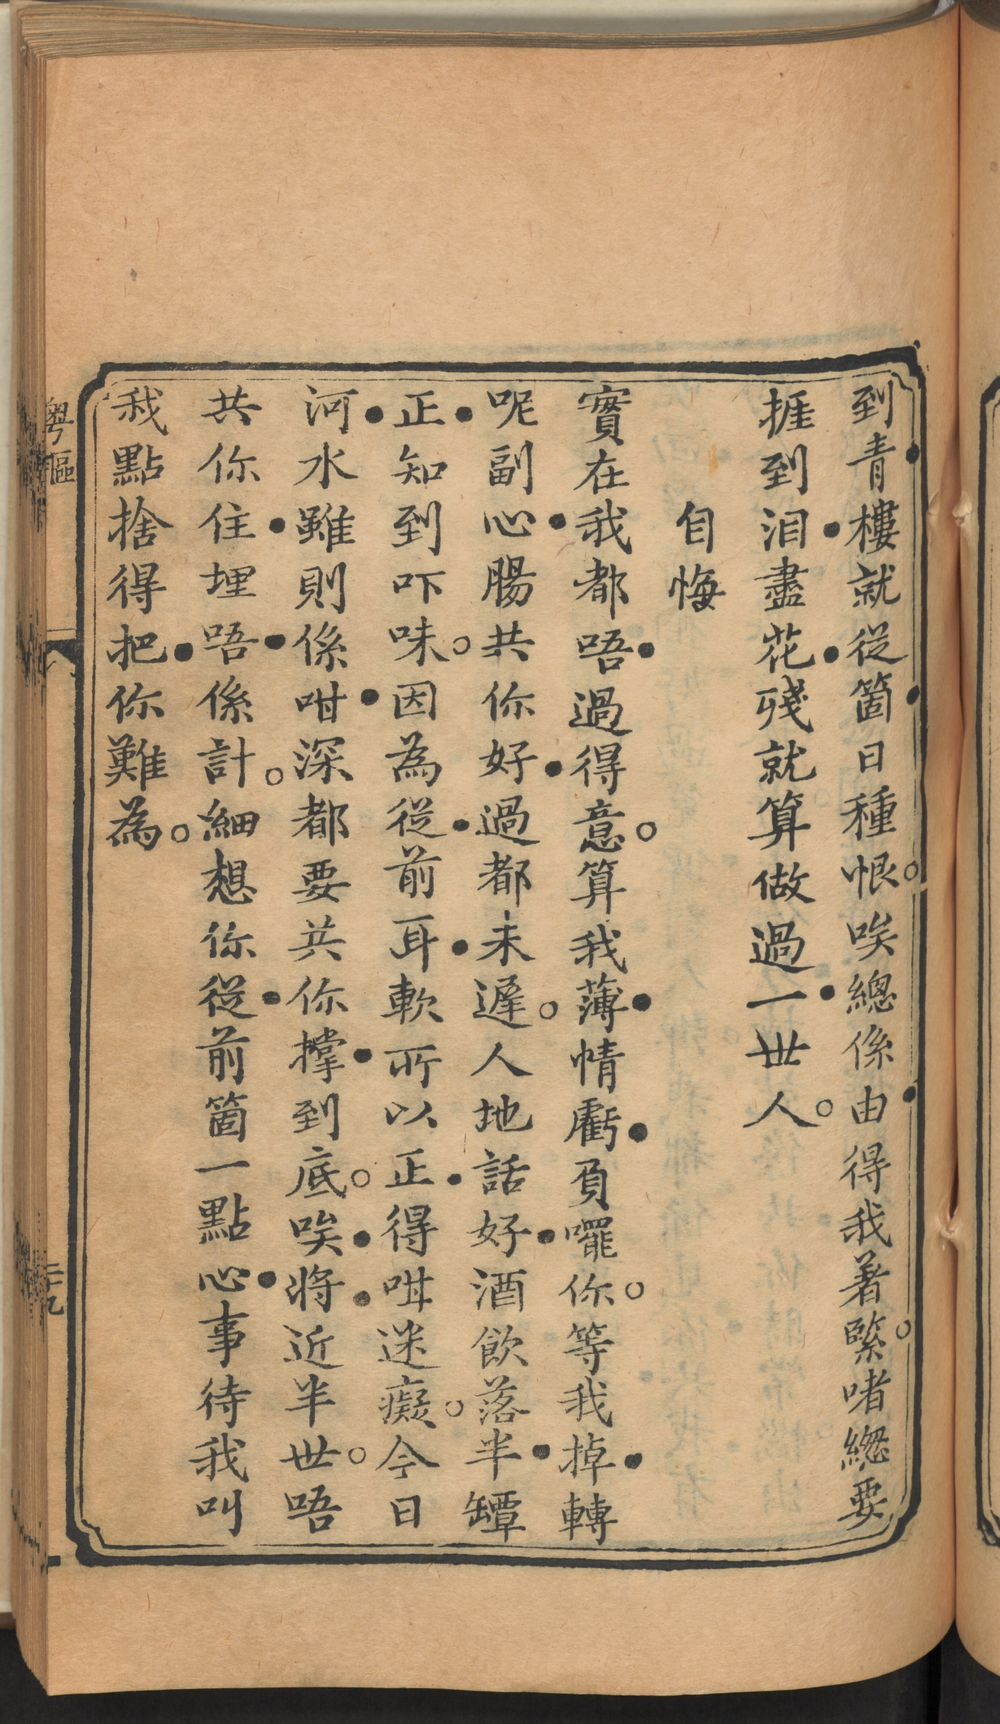 到青樓就從箇日種恨。唉總係由得我著緊。啫緫要
捱到泪盡花殘就算做過一世人。
自悔
實在我都唔過得意。算我薄情虧負嚁你。等我掉轉
呢副心腸共你好過都未遲。人地話好酒飲落半罈
正知到吓味。因為從前耳軟所以正得咁迷癡。今日
河水雖則係咁深都要共你撑到底。唉將近半世。唔
共你住埋唔係計。細想你從前箇一點心事待我叫
我點捨得把你難為。
粵謳
二十九